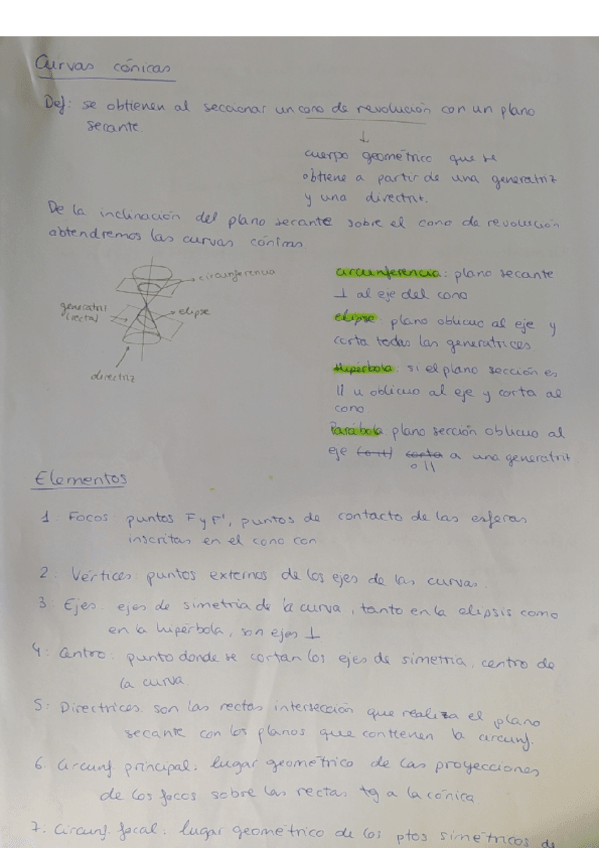 Curvas cónicas
Def: se obtienen al seccionar un cono de revolución con un plano
secante.
↓
cuerpo geométrico que se
obtiene a partir de una generatriz
y una directriz.
De la inclinación del plano secante sobre el cono de revolución
obtendremos las curvas cónicas
circunferencia
generatriz
(recta)
elipse
directriz
circunferencia: plano secante
⊥ al eje del cono
elipse plano oblicuo al eje y
corta todas las generatrices
Hipérbola: si el plano sección es
|| u oblicuo al eje y corta al
cono
Parábola plano sección oblicuo al
eje corta a una generatriz
o ||
Elementos
1. Focos: puntos F y F', puntos de contacto de las esferas
inscritas en el cono con.
2. Vértices: puntos externos de los ejes de las curvas.
3. Ejes: ejes de simetría de la curva, tanto en la elipsis como
en la hipérbola, son ejes ⊥
4. Centro: punto donde se cortan los ejes de simetria, centro de
la curva.
5: Directrices: son las rectas intersección que realiza el plano
secante con los planos que contienen la circunf.
6. Circunf. principal: lugar geométrico de las proyecciones
de los focos sobre las rectas tg a la cónica
7. Circunf. focal: lugar geométrico de los ptos simétricos de